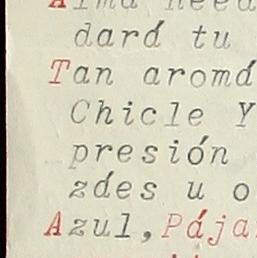 dará tu
Tan aromá
Chicle Y
presión
zdes u o
Azul, Pája